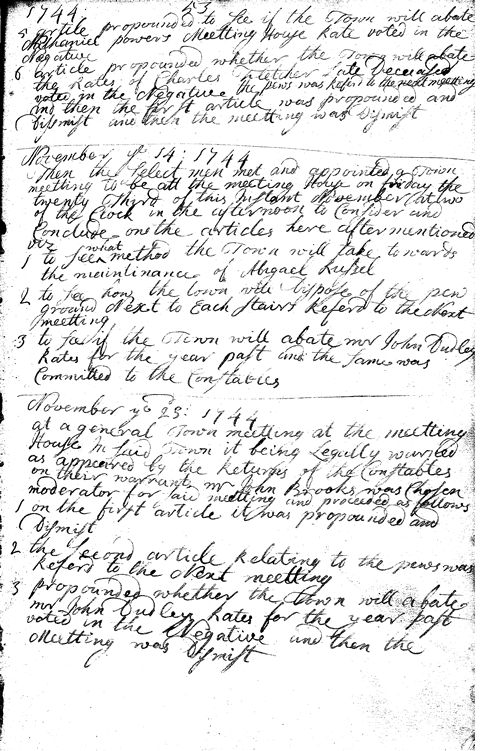 1744
53
5 article propounded to see if the Town will abate
Nathaniel powers Meetting House Rate voted in the
Negative
6 article propounded whether the Town will abate
the Rates of Charles Fletcher Late Deceased
voted in the Negative the pews was Referd to the next meetting
and then the first article was propounded and
Dismist and then the meetting was Dismist
November ye 14: 1744
then the Select men met and appointed a Town
meetting to be att the meeting House on friday the
twenty Third of this Instant November at two
of the Clock in the afternoon to Consider and
Conclude on the articles here after mentioned
viz
1 to see what method the Town will take towards
the maintinance of Abigael Russel
2 to see how the town will Dispose of the pew
ground Next to Each Stairs Referd to the Next
meetting
3 to see if the Town will abate mr John Dudley
Rates for the year past and the same was
Committed to the Constables
November ye 23: 1744
at a general Town meetting at the meetting
House in said Town it being Legally warned
as appeared by the Returns of the Constables
on their warrants mr John Brooks was Chosen
moderator for said meetting and proceeded as follows
1 on the first article it was propounded and
Dismist
2 the Second article Relating to the pews was
Referd to the Next meetting
3 propounded whether the Town will abate
mr John Dudley Rates for the year past
voted in the Negative and then the
Meetting was Dismist